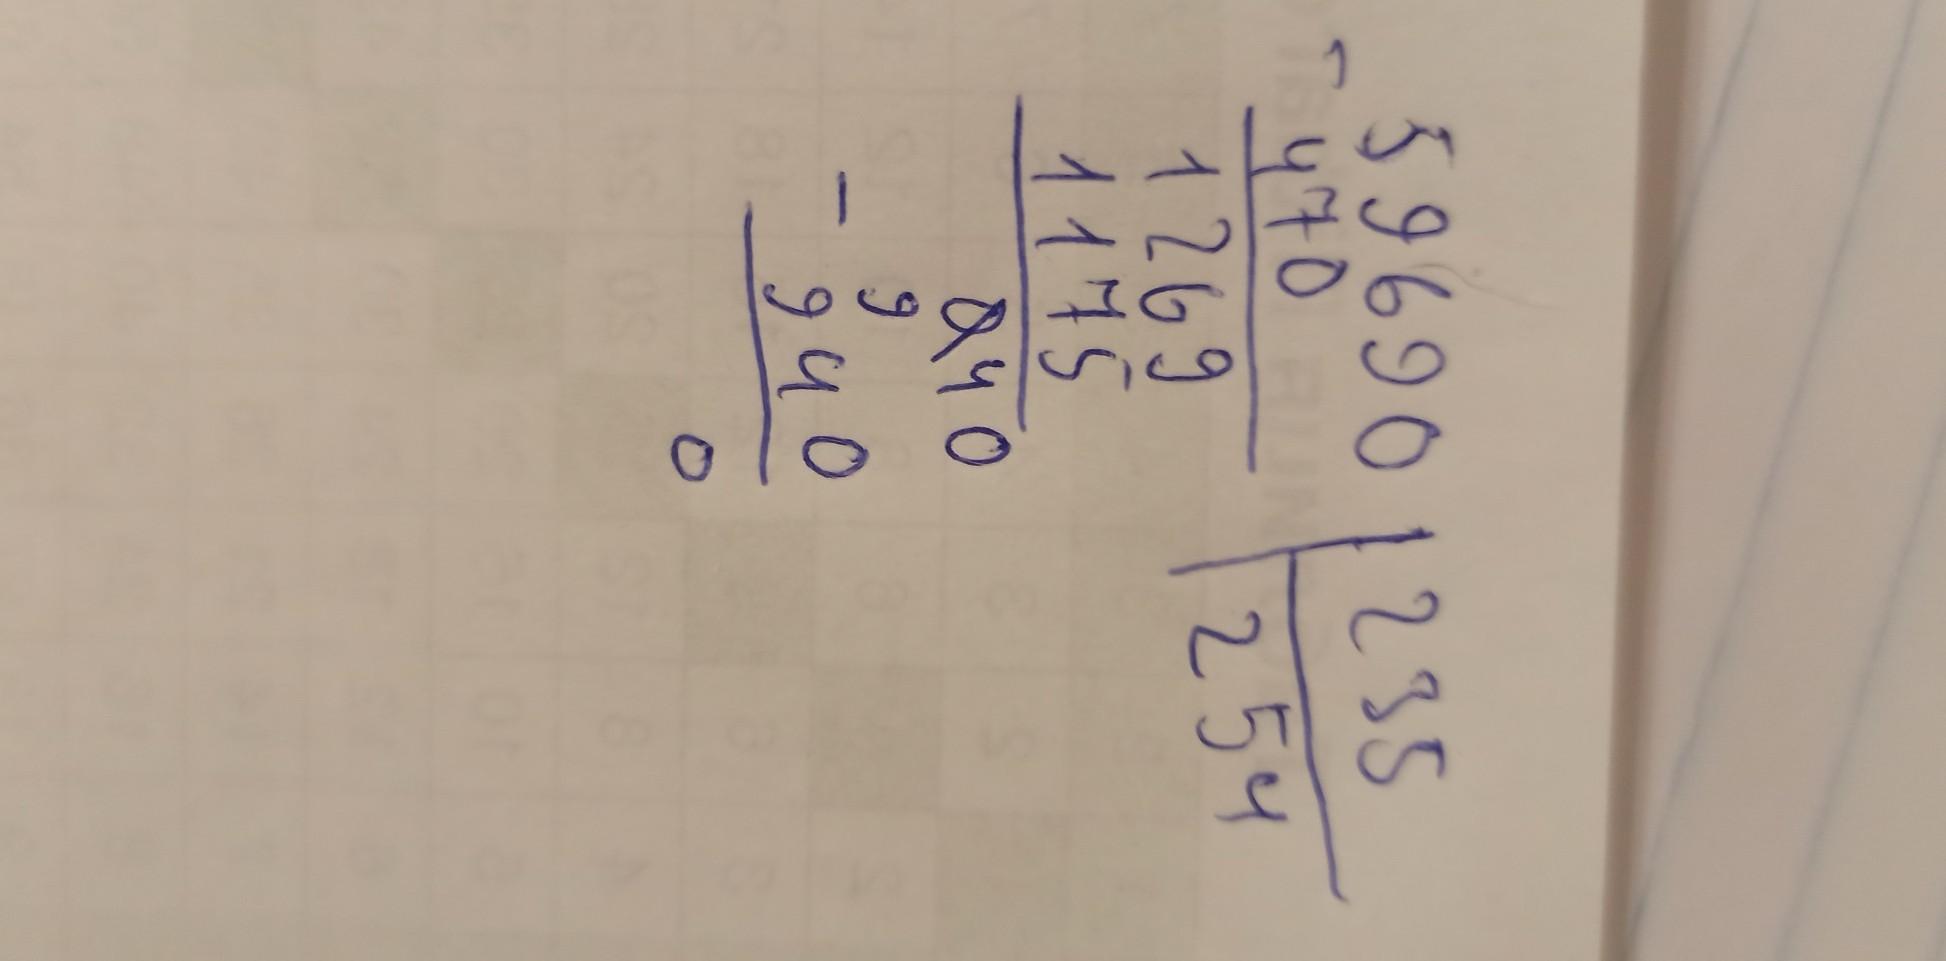 59690 | 235
- 470 | 254
1269
1175
840
9
- 940
0